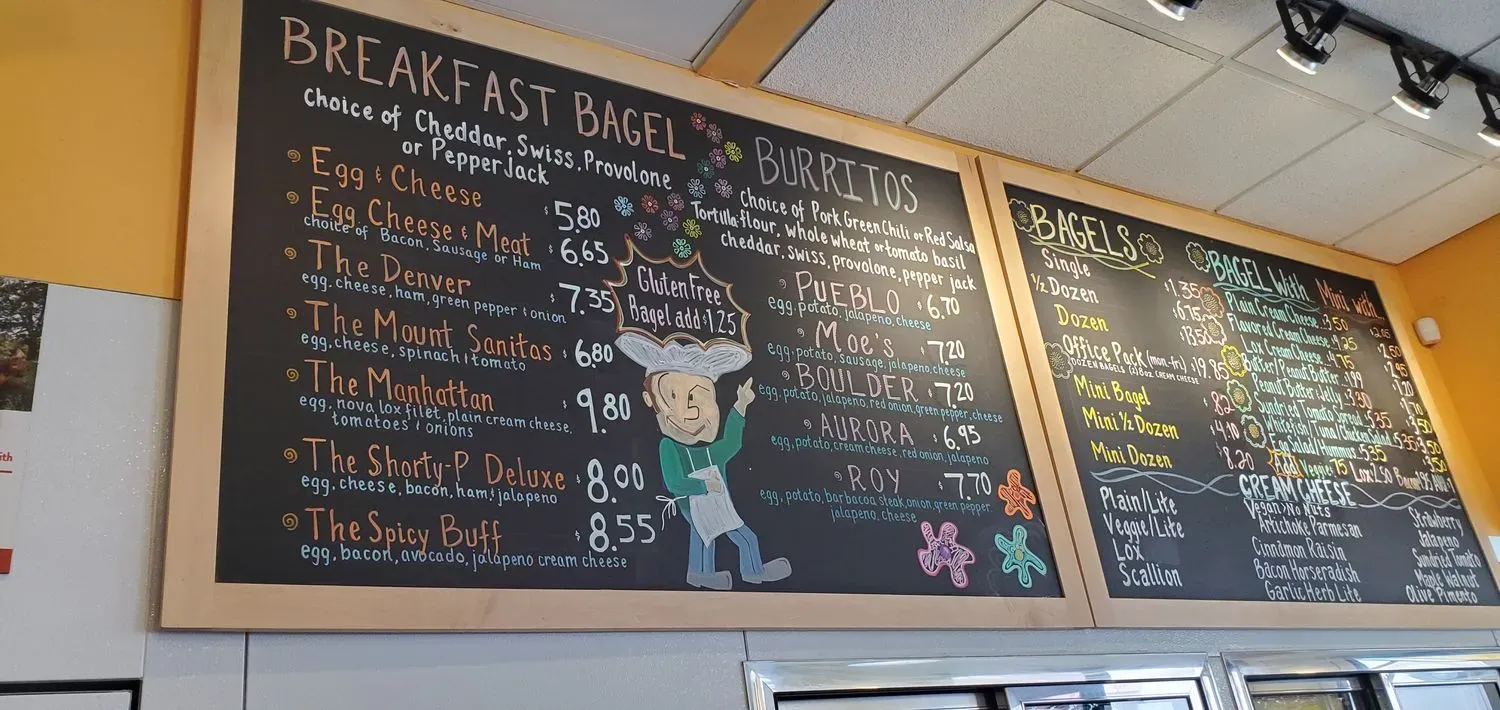 BREAKFAST BAGEL
Choice of Cheddar, Swiss, Provolone
or Pepper Jack
Egg & Cheese $5.80
Egg, Cheese & Meat $6.65
choice of Bacon, Sausage or Ham
The Denver $7.35
egg, cheese, ham, green pepper & onion
The Mount Sanitas $6.80
egg, cheese, spinach & tomato
The Manhattan $9.80
egg, nova lox filet, plain cream cheese,
tomatoes & onions
The Shorty-P Deluxe $8.00
egg, cheese, bacon, ham & jalapeno
The Spicy Buff $8.55
egg, bacon, avocado, jalapeno cream cheese
Gluten Free
Bagel add $1.25
BURRITOS
Choice of Pork Green Chili or Red Salsa
Tortilla: flour, whole wheat or tomato basil
cheddar, swiss, provolone, pepper jack
PUEBLO $6.70
egg, potato, jalapeno, cheese
MOE'S $7.20
egg, potato, sausage, jalapeno, cheese
BOULDER $7.20
egg, potato, jalapeno, red onion, green pepper, cheese
AURORA $6.95
egg, potato, cream cheese, red onion, jalapeno
ROY $7.70
egg, potato, barbacoa, steak, onion, green pepper
jalapeno, cheese
BAGELS
Single $1.35
1/2 Dozen $6.75
Dozen
Office Pack (mon-fri) $19.85
DOZEN BAGELS (2) 8 oz. CREAM CHEESE
Mini Bagel $.82
Mini 1/2 Dozen $4.10
Mini Dozen $8.20
BAGEL With Mini with
Plain Cream Cheese
Flavored Cream Cheese
Lox Cream Cheese
Butter/Peanut Butter
Peanut Butter Jelly
Sundried Tomato Spread
Whitefish/Tuna/Chicken Salad
Egg Salad/Hummus
Add Veggie .75 Lox
CREAM CHEESE
Plain/Lite
Veggie/Lite
Lox
Scallion
Vegan > No Nuts
Artichoke Parmesan
Cinnamon Raisin
Bacon Horseradish
Garlic Herb Lite
Strawberry
Jalapeno
Sundried Tomato
Maple Walnut
Olive Pimento
ith